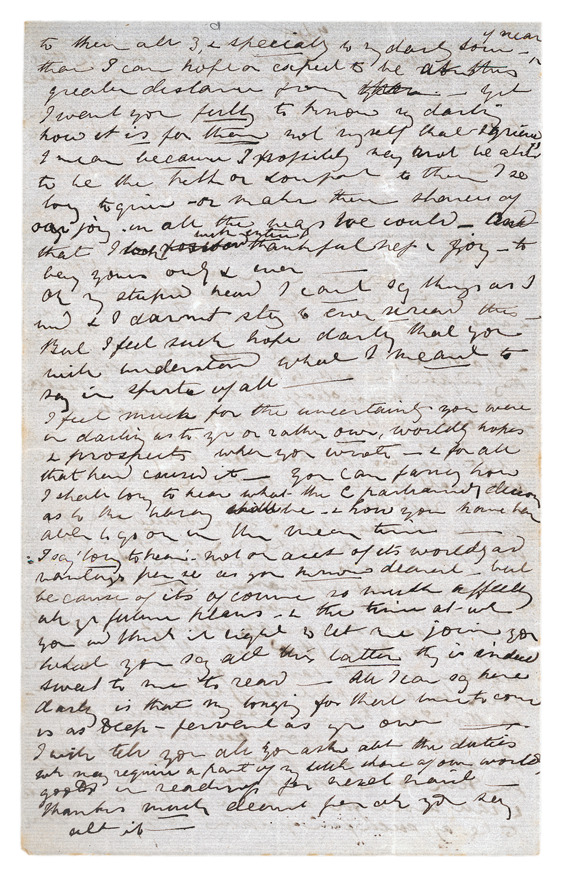 to them all 3, & specially to my darly
than I can hope or expect to be
greater distance from — yet
I want you fully to know my darling
how it is for them not myself that I grieve
I mean because I possibly may not be able
to be the help or comfort to them I se
long to give - or make them sharers of
our joy in all the ways we could — And
that I look with entire thankful hope & joy — to
being yours only & ever —
Oh my stupid head I can't say things as I
& I darnnt stay to ever reread this —
But I feel such hope darly that you
will understand what I meant to
say in spite of all —
I feel much for the uncertainty you were
in darling as to yr or rather our, worldly hopes
& prospects when you wrote — & for all
that had caused it — You can fancy how
I shall long to hear what the
as to the library & how you have been
able to go on in the mean time —
I say 'long to hear' not on acct of its worldly ad
vantage per se as you know dearest - but
because of its of course so much affecting
all yr future plans - & the time at wh
you wd think it right to let me join you
What you say abt this latter thg is indeed
sweet to me to read — All I can say here
darlg is that my longing for that time to come
is as deep - fervent as yr own —
I will tell you all you ask abt the duties
wh may require a part of my little store of our worldly
goods in readiness for
Thanks much dearest for all you say
abt it —